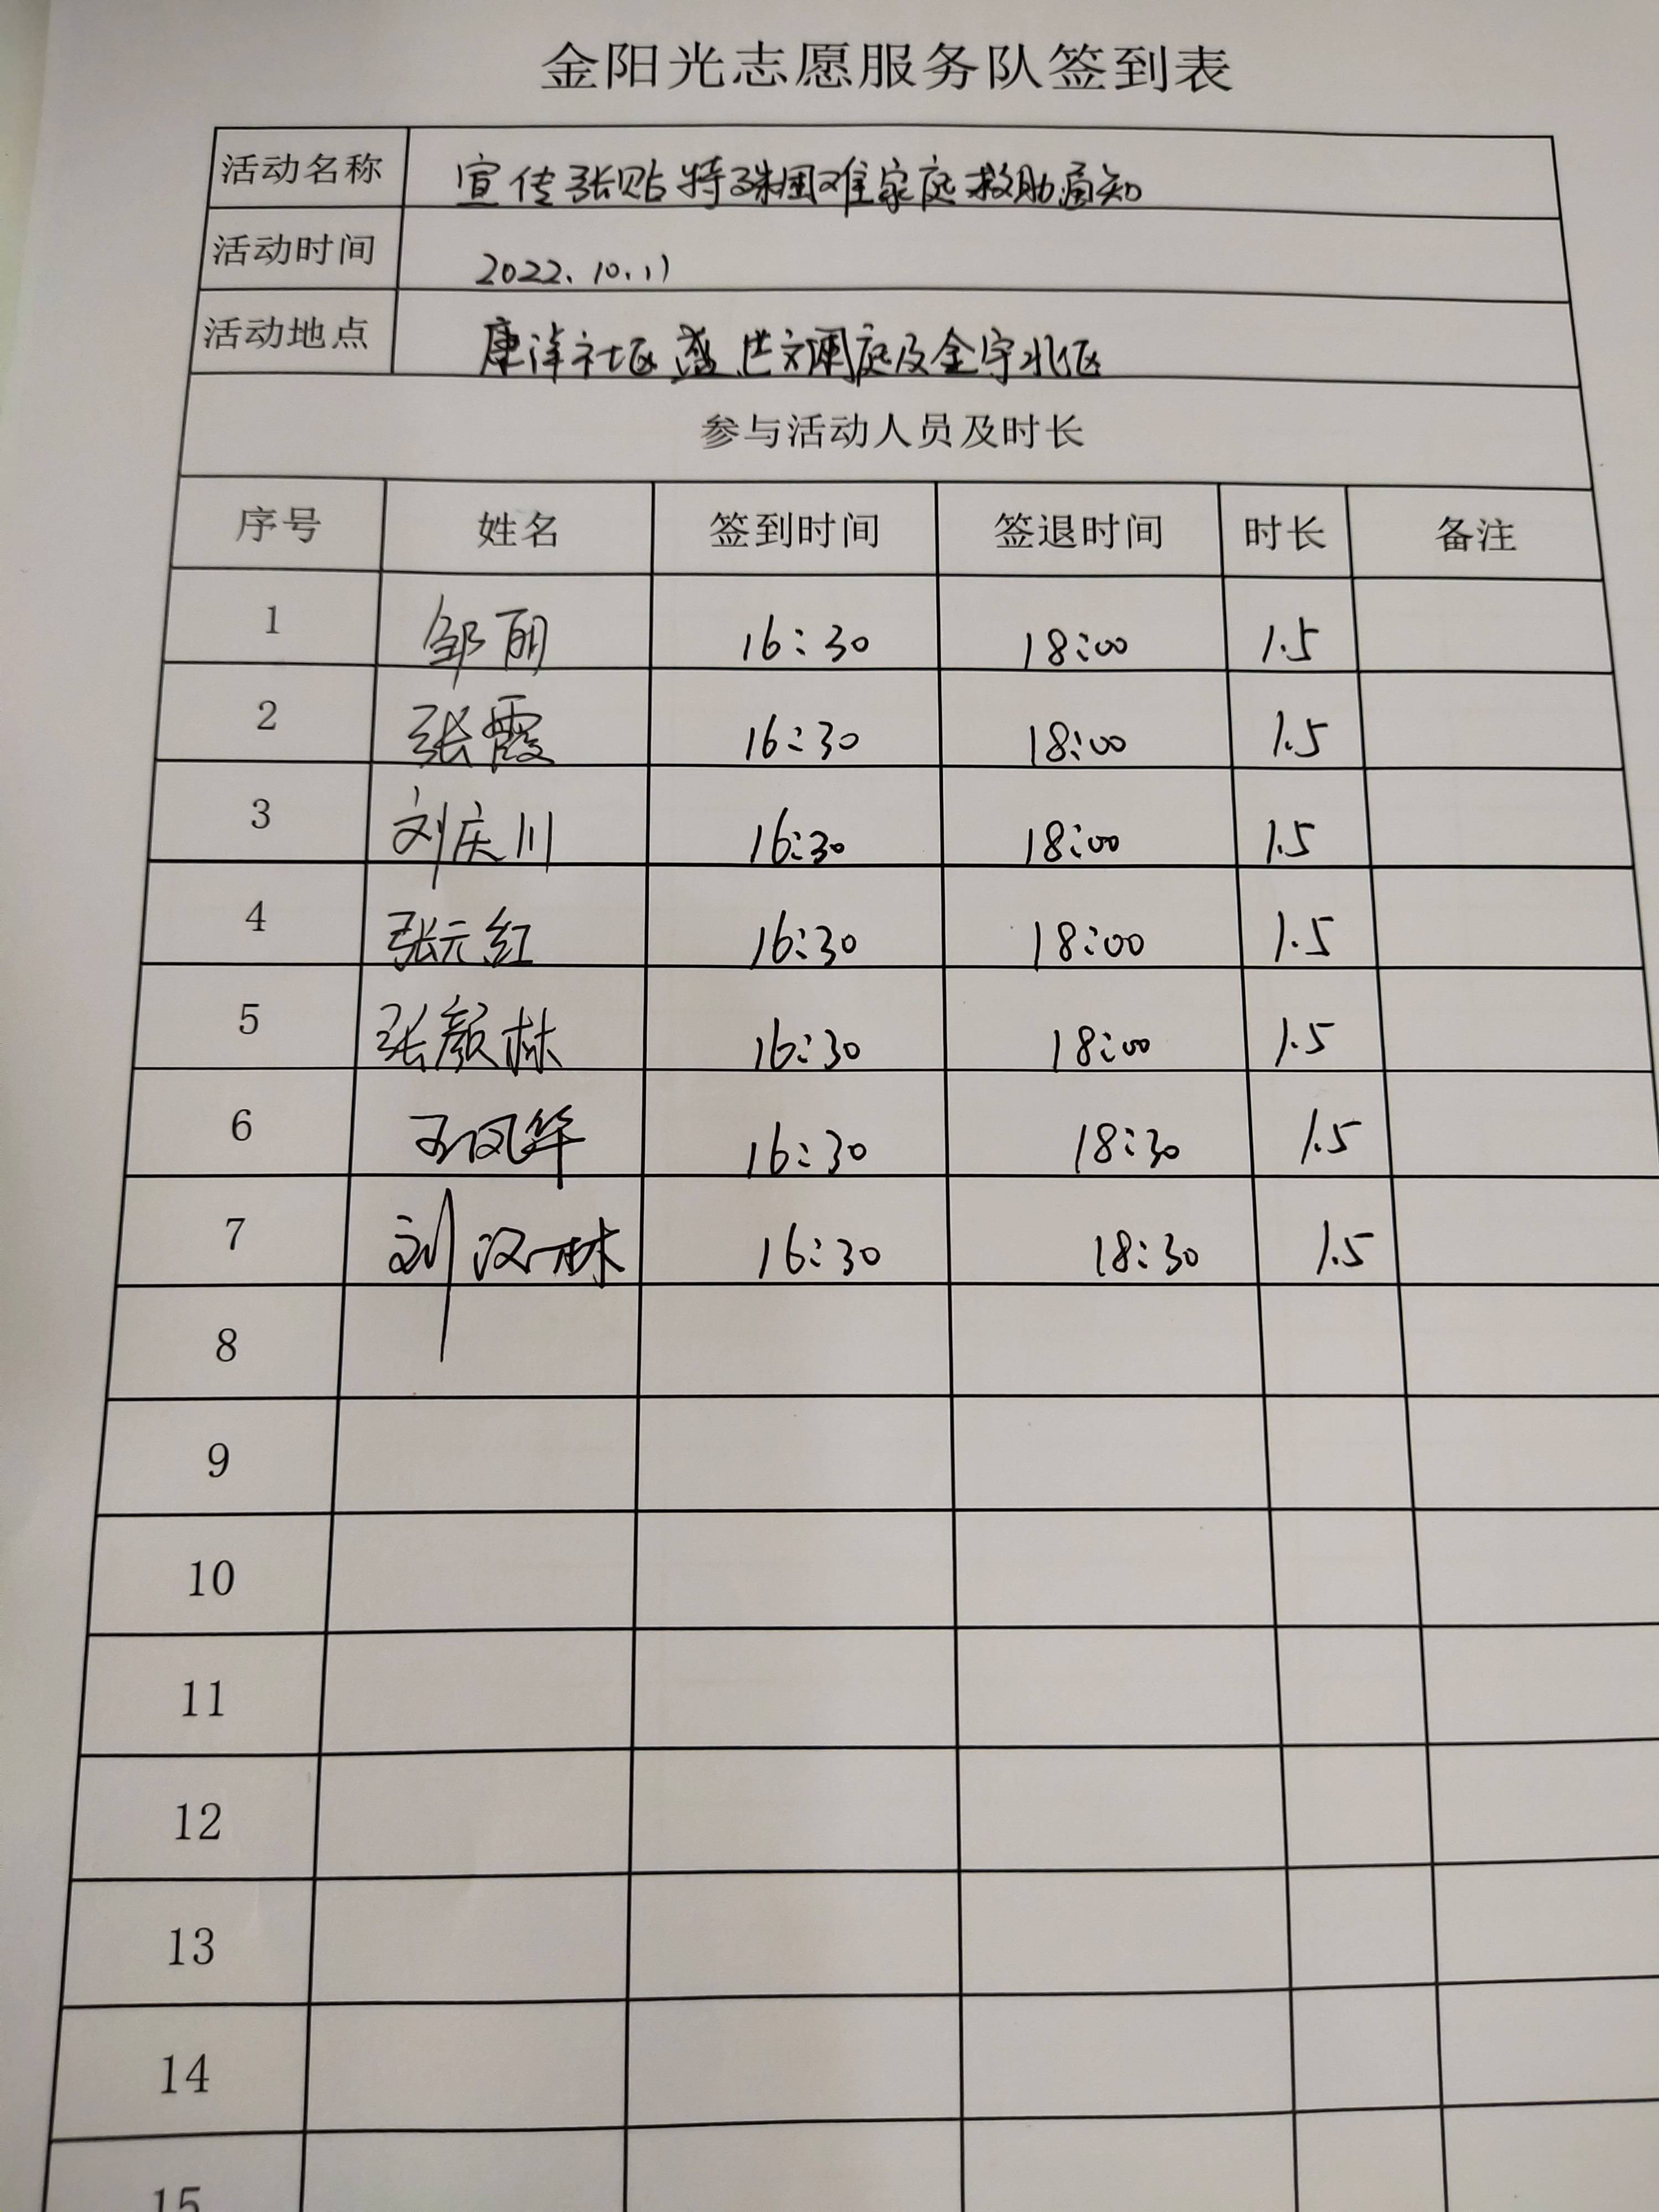 金阳光志愿服务队签到表
活动名称 宣传张贴特殊困难家庭救助通知
活动时间 2022.10.11
活动地点 康洋社区盛世文澜庭及金宇北区
参与活动人员及时长
序号 姓名 签到时间 签退时间 时长 备注
1 邹丽 16:30 18:00 1.5
2 张霞 16:30 18:00 1.5
3 刘庆川 16:30 18:00 1.5
4 张元红 16:30 18:00 1.5
5 张颜林 16:30 18:00 1.5
6 王凤华 16:30 18:30 1.5
7 刘汉林 16:30 18:30 1.5
8
9
10
11
12
13
14
15